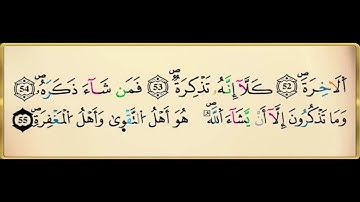 اَ۬لَاخِرَةَۖ 52 كَلَّآ إِنَّهُۥ تَذْكِرَةٌۖ 53 فَمَن شَآءَ ذَكَرَهُۥۖ 54
وَمَا تَذْكُرُونَ إِلَّآ أَنْ يَّشَآءَ اَ۬للَّهُۖ هُوَ أَهْلُ اُ۬لتَّقْو۪يٰ وَأَهْلُ اُ۬لْمَغْفِرَةِۖ 55